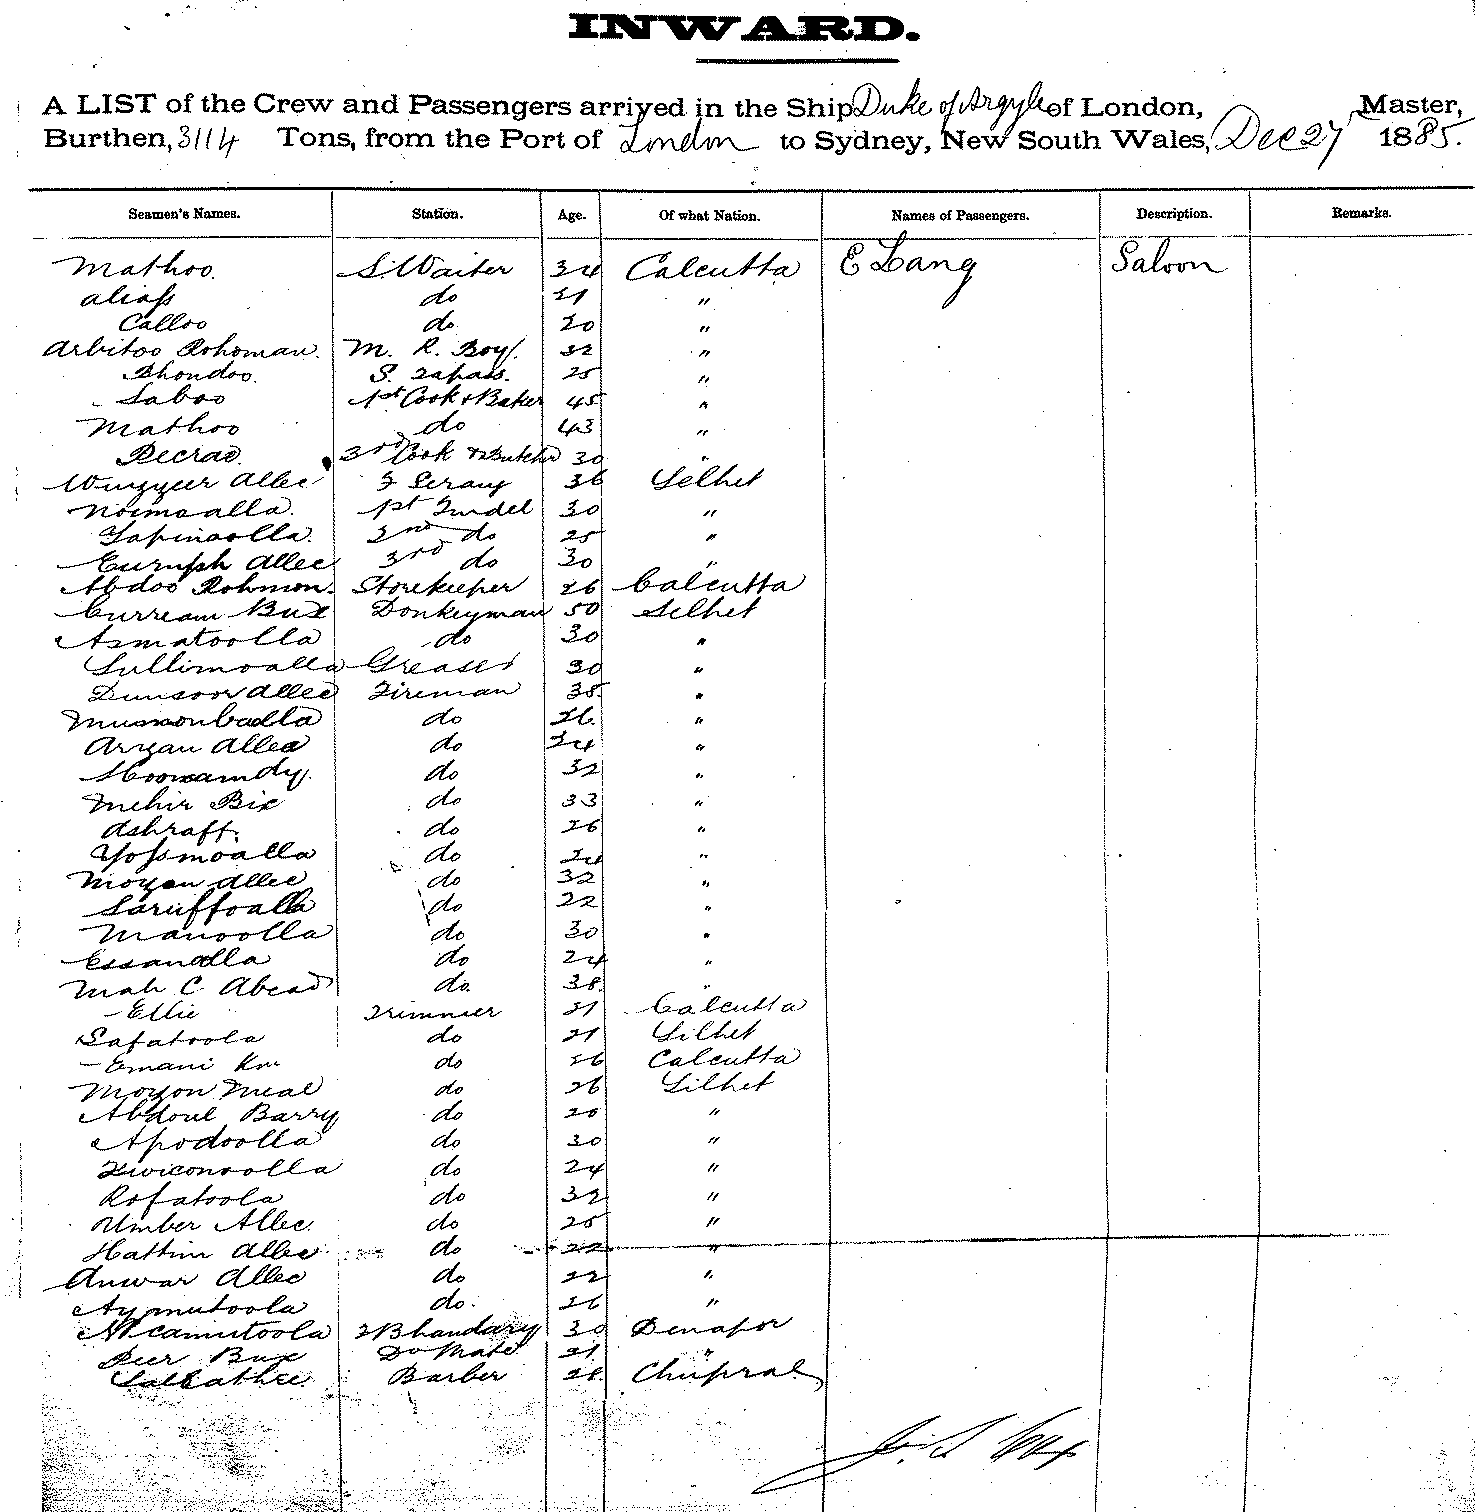 INWARD.
A LIST of the Crew and Passengers arrived in the Ship Duke of Argyle of London, Master,
Burthen, 3114 Tons, from the Port of London to Sydney, New South Wales, Dec 27 1885.
Seamen's Names. Station. Age. Of what Nation. Names of Passengers. Description. Remarks.
Mathoo. S. Waiter 34 Calcutta E Lang Saloon
do 21 "
Calloo do 20 "
Arbitoo Rohoman. M. R. Boy 32 "
Bhondoo. S. 25 "
Saboo 1st Cook & Baker 45 "
Mathoo do 43 "
3rd Cook & Butcher 30 "
Allee 36 Selhet
Noimoalla. 1st Tindel 30 "
Tapinoolla. 2nd do 25 "
Allee 3rd do 30 "
Abdoo Rohmon. Storekeeper 26 Calcutta
Curream Bux Donkeyman 50 Selhet
Asmatoolla do 30 "
Sullimoalla Greaser 30 "
Allee Fireman 35 "
do 26 "
Aryan Allee do 24 "
do 32 "
Mehir Bix do 33 "
Ashraff. do 26 "
Yossmoalla do 24 "
Moyen Allee do 32 "
Saruffoalla do 22 "
Manoolla do 30 "
Essanolla do 24 "
Mah C Abead do. 38 "
Ellie Trimmer 21 Calcutta
Safatoola do 21 Silhet
Emani do 26 Calcutta
Moyon Meal do 26 Silhet
Abdoul Barry do 20 "
Apodoolla do 30 "
do 24 "
Rofatoola do 32 "
Umber Allee. do 25 "
Hattim Allee do 22 "
Anwar Allee do 22 "
Aymutoola do. 26 "
2 Bhandary 30 Denapor
Peer Bux Do Mate 21 "
Barber 28 Chupral